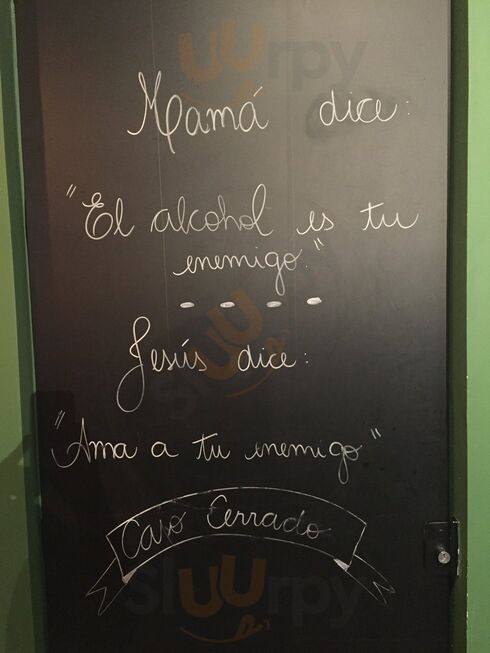 Sluurpy
Mamá dice:
"El alcohol es tu
enemigo."
Sluurpy
Jesús dice:
"Ama a tu enemigo"
Caso Cerrado
Sluurpy